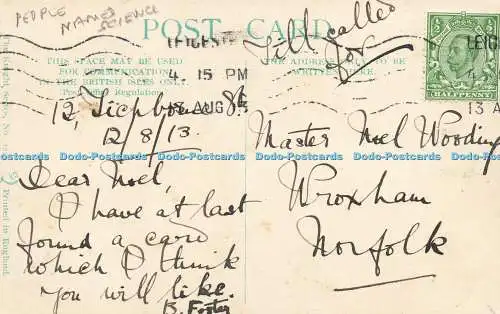 PEOPLE
NAMES
SCIENCE
POST CARD
Till called
for
THIS SPACE MAY BE USED
FOR COMMUNICATION
IN THE BRITISH ISLES ONLY.
THE ADDRESS ONLY TO BE
WRITTEN HERE.
LEICESTE
4. 15 PM
13 AUG
LEIC
13 A
HALFPENNY
12,
12/8/13.
Dear Noel,
I have at last
found a card
which I think
you will like.
B. Foster
Master Noel Wooding
Wroxham
Norfolk
Printed in England.
Dodo-Postcards Dodo-Postcards Dodo-Postcards Dodo-Postcards Dodo-Postcards Dodo-Postcards